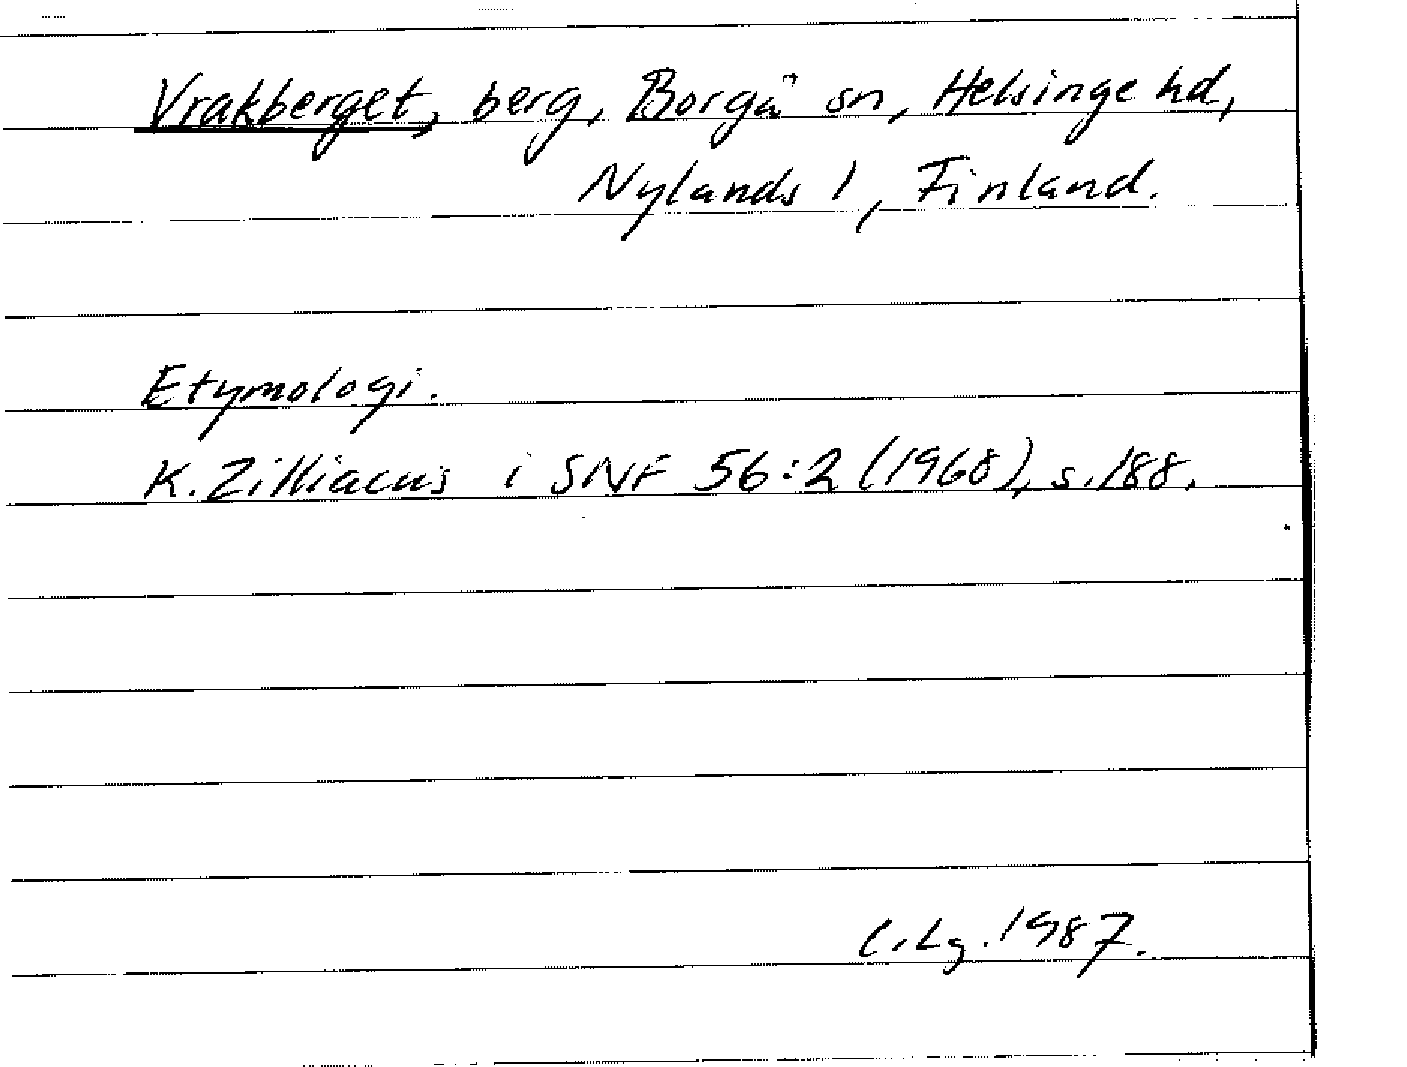 Vrakberget, berg, Borgå sn, Helsinge hd,
Nylands l, Finland.
Etymologi.
K. Zilliacus i SNF 56:2 (1968), s. 188.
C. Lg. 1987.